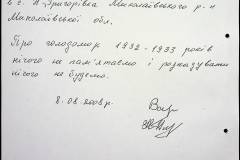 в с. Н-Григорівка Миколаївського р-н
Миколаївської обл.
Про голодомор 1932-1933 років
нічого не пам'ятаємо і розказувати
нічого не будемо.
8.08.2008 р.